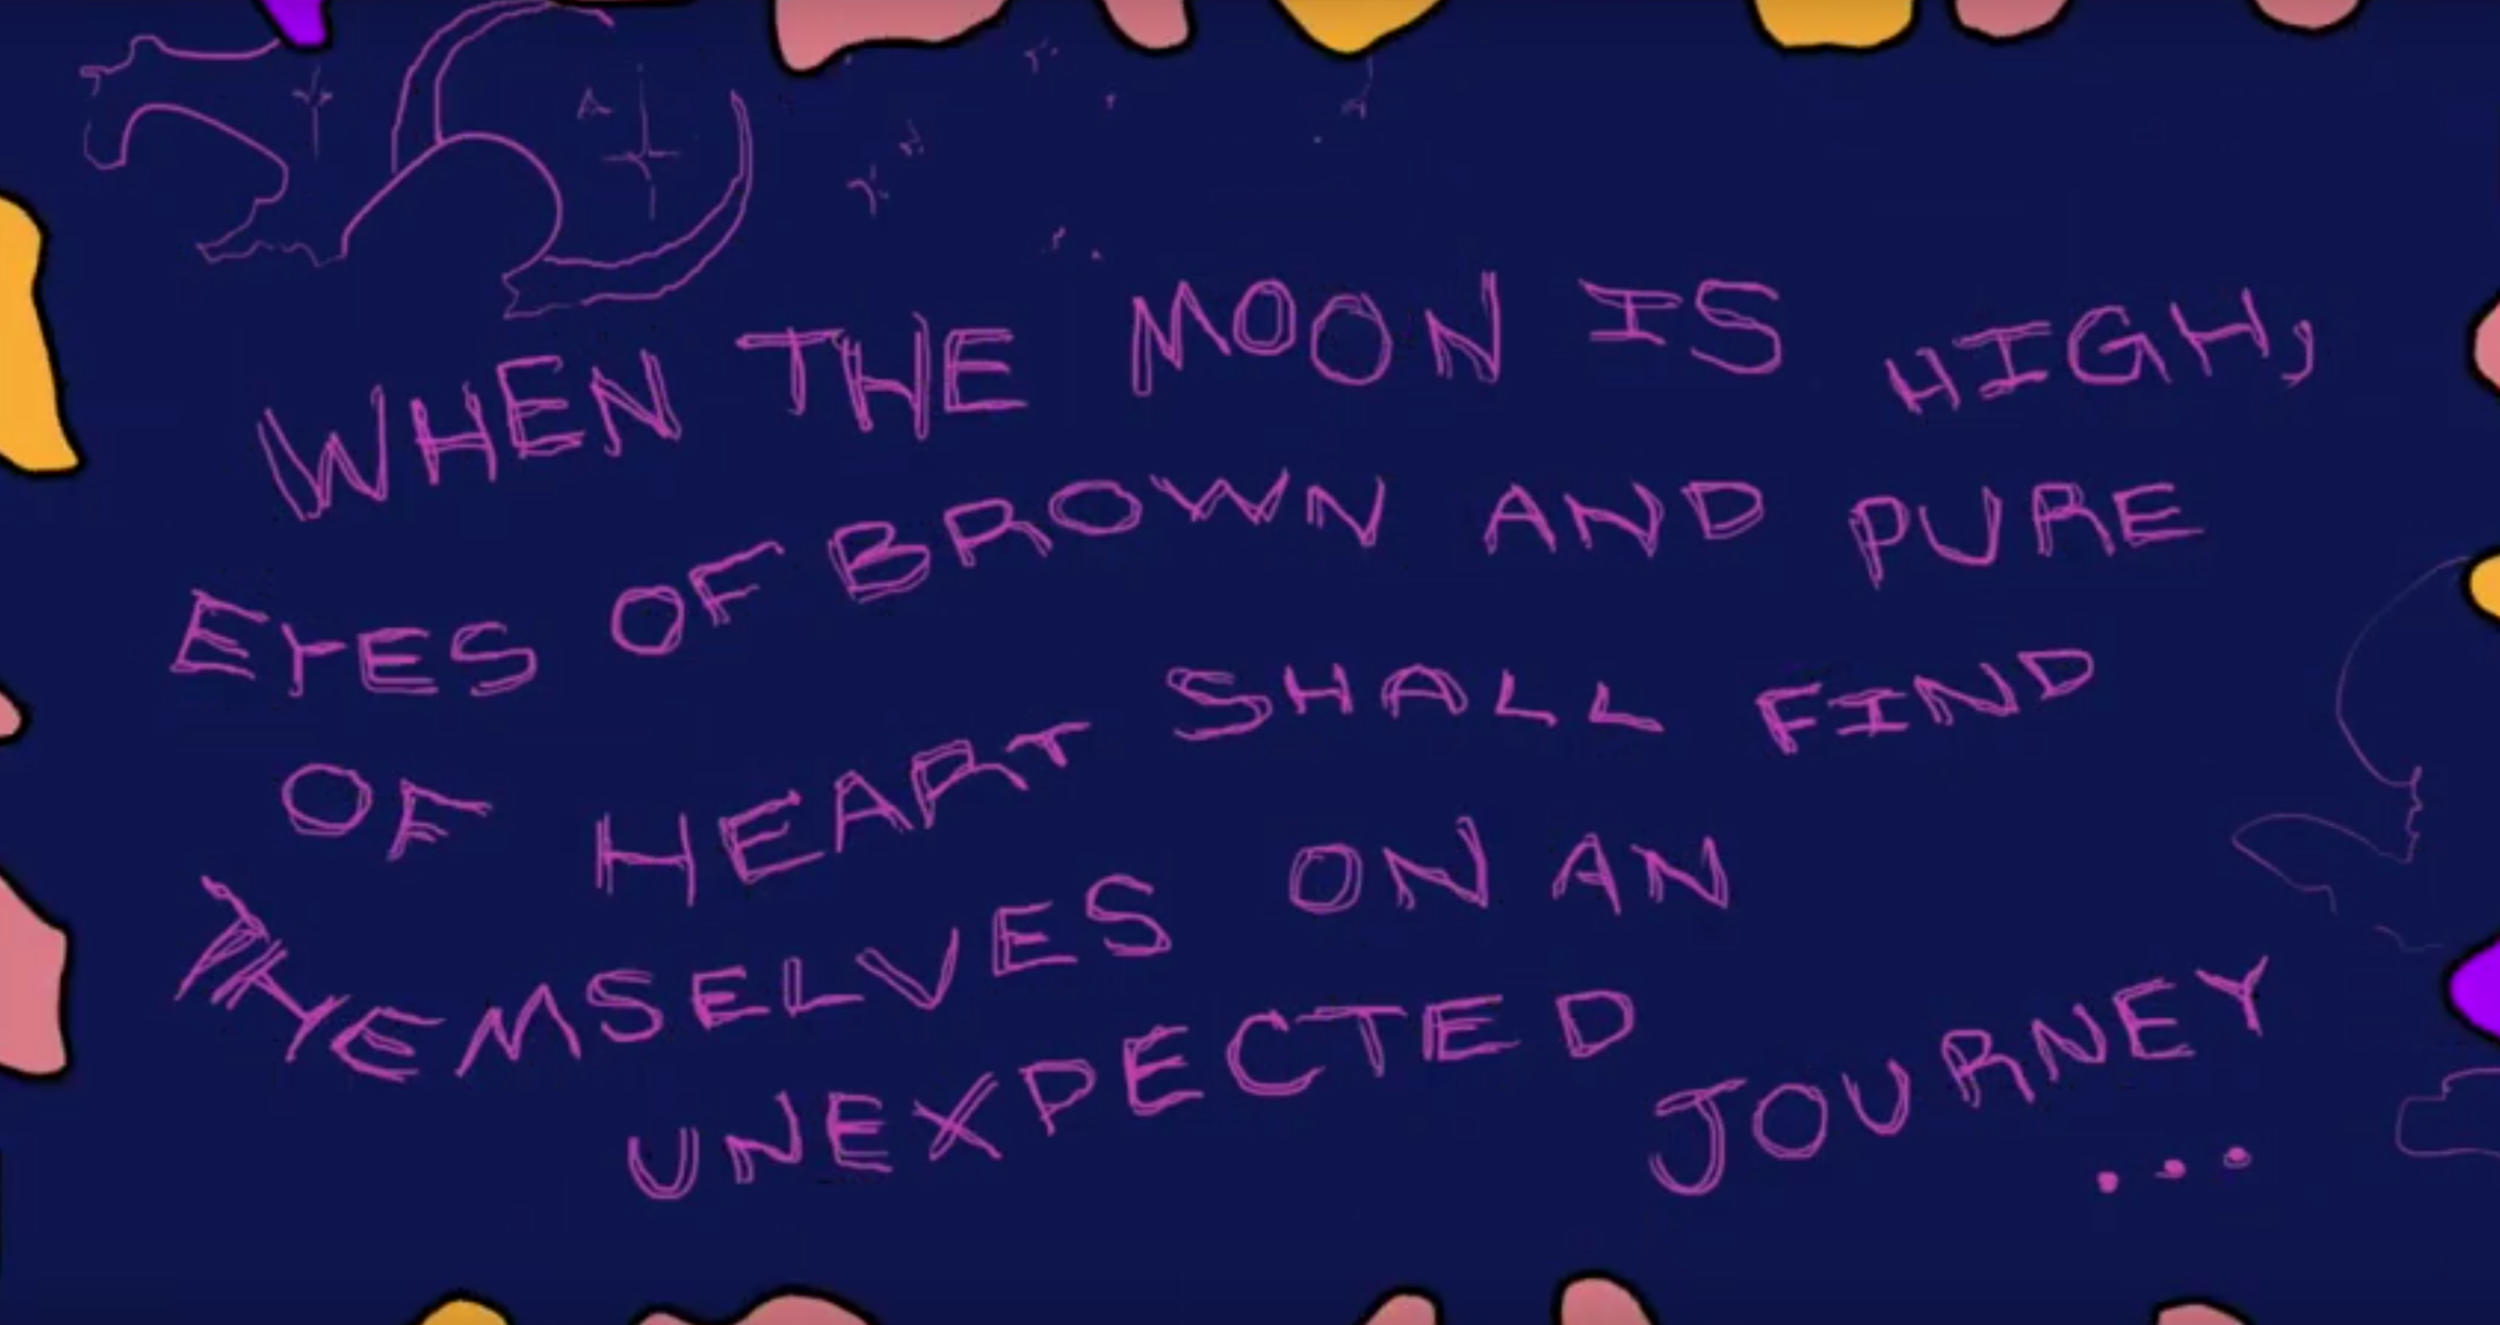 WHEN THE MOON IS HIGH,
EYES OF BROWN AND PURE
OF HEART SHALL FIND
THEMSELVES ON AN
UNEXPECTED JOURNEY
...